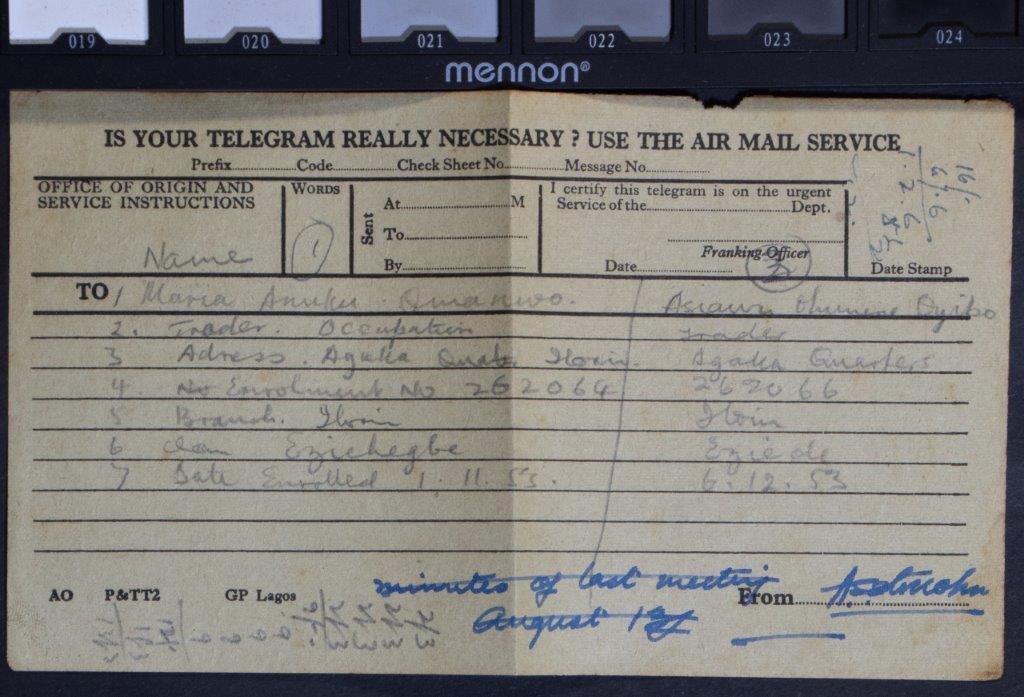 019 020 021 022 023 024
mennon®
IS YOUR TELEGRAM REALLY NECESSARY ? USE THE AIR MAIL SERVICE
Prefix Code Check Sheet No. Message No.
OFFICE OF ORIGIN AND
SERVICE INSTRUCTIONS
WORDS
Sent
At M
To
By
I certify this telegram is on the urgent
Service of the Dept.
Franking Officer
Date
Date Stamp
Name 1 2
TO 1 Maria
2. Trader. Occupation Trader
3 Adress. Agaka Ilorin. Agaka Quarters
4 No Enrolment No 262064 262066
5 Branch. Ilorin Ilorin
6 Clan Ezichegbe Eziede
7 Date Enrolled 1. 11. 53. 6. 12. 53
minutes of last meeting
August
AO P&TT2 GP Lagos From